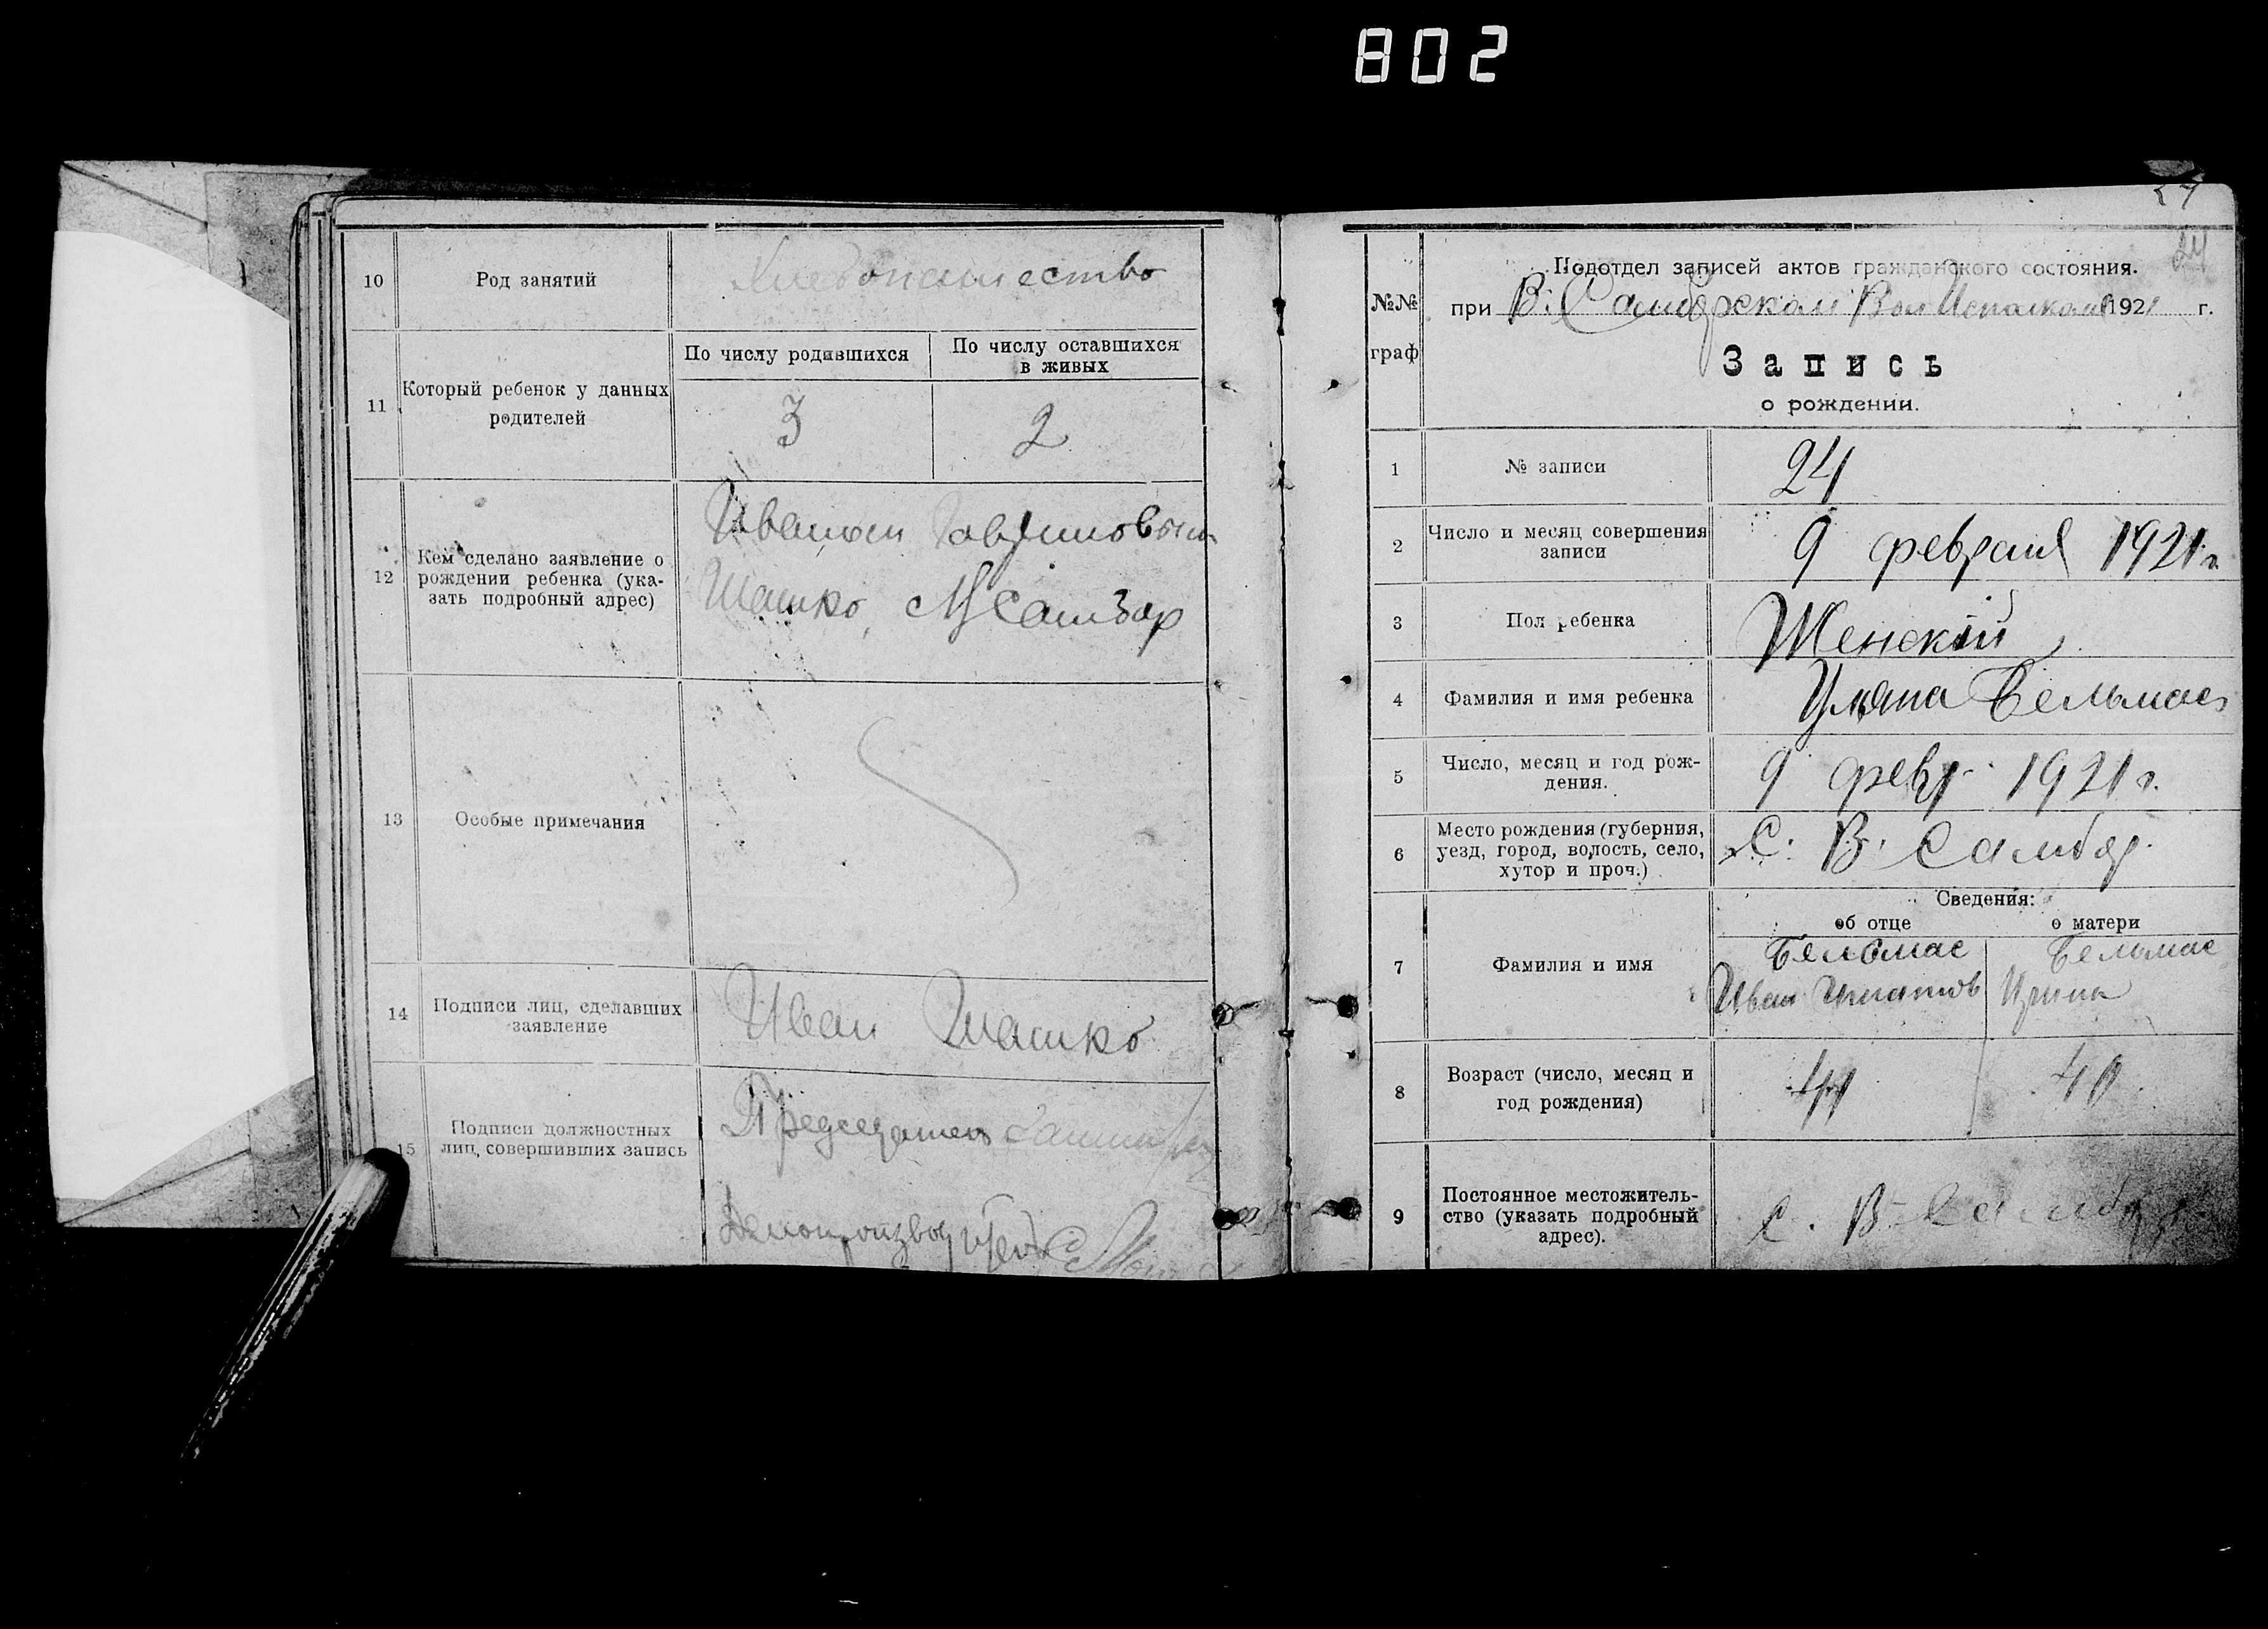 802
10 Род занятий Хлебопашество
11 Который ребенок у данных родителей
По числу родившихся
По числу оставшихся
в живых
3
2
12 Кем сделано заявление о
рождении ребенка (ука-
зать подробный адрес)
Иваном
Шашко,
13 Особые примечания
14 Подписи лиц, сделавших
заявление
Иван Шашко
15 Подписи должностных
лиц, совершивших запись
Председатель
Делопроизводитель
27
24
№№
граф
Подотдел записей актов гражданского состояния.
при В. Самбрском Вол Исполкоме 1921 г.
Запись
о рождении.
1 № записи 24
2 Число и месяц совершения
записи
9 февраля 1921 г.
3 Пол ребенка Женский
4 Фамилия и имя ребенка Уляна Бельмас
5 Число, месяц и год рож-
дения.
9 февр. 1921 г.
6 Место рождения (губерния,
уезд, город, волость, село,
хутор и проч.)
С. В. Самбор
Сведения:
об отце
о матери
7 Фамилия и имя
Бельмас
Иван Игнатов
Бельмас
Ирина
8 Возраст (число, месяц и
год рождения)
40
9 Постоянное местожитель-
ство (указать подробный
адрес).
С. В. Самбор